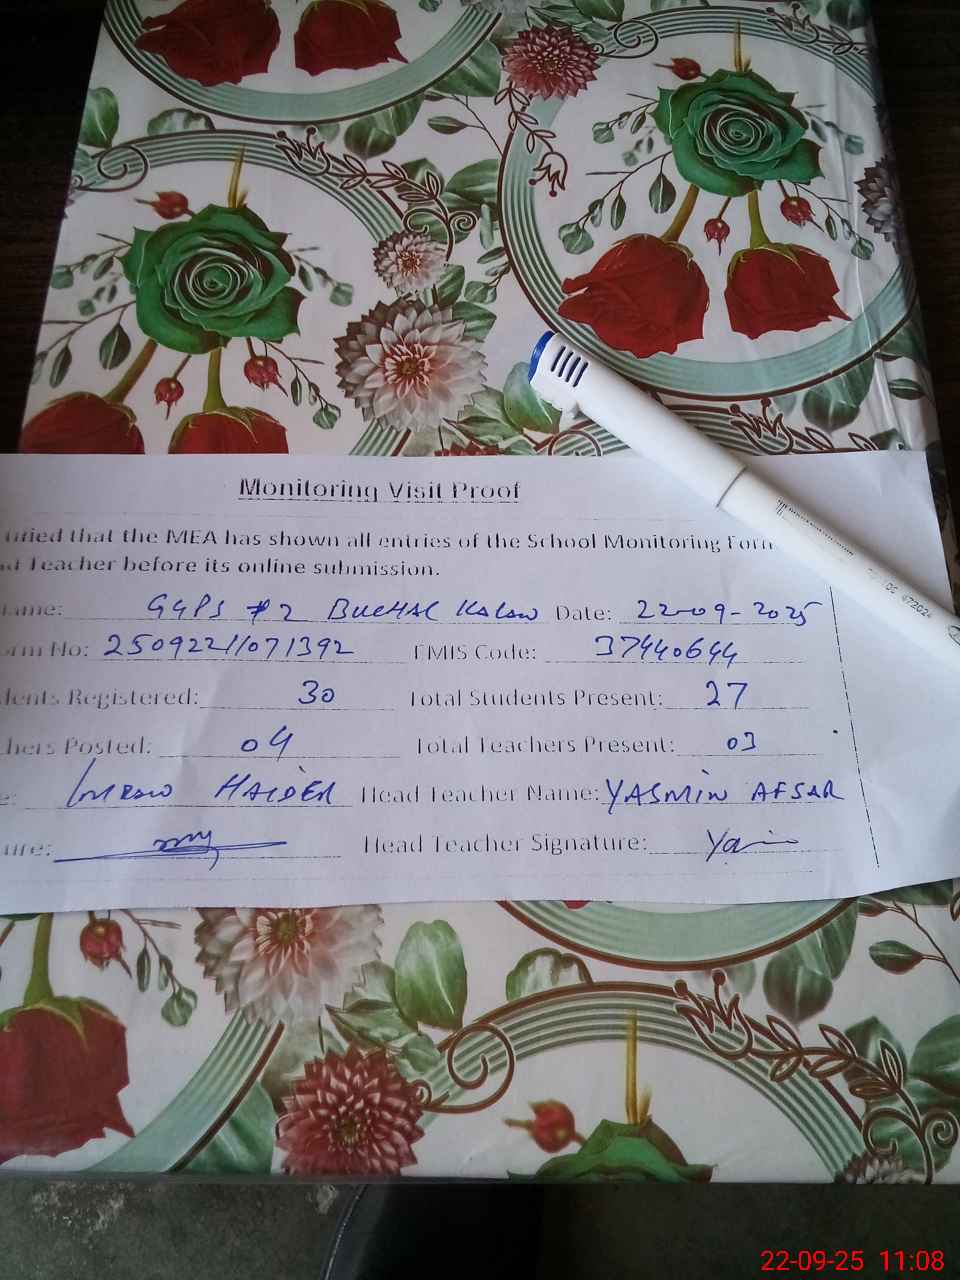 Monitoring Visit Proof
tified that the MEA has shown all entries of the School Monitoring Form
ad Teacher before its online submission.
ame: GGPS #2 BUCHAL KALAN Date: 22-09-2025
orm No: 25092211071392 EMIS Code: 37440644
dents Registered: 30 Total Students Present: 27
hers Posted: 04 Total Teachers Present: 03
e: IMRAN HAIDER Head Teacher Name: YASMIN AFSAR
ure: Head Teacher Signature:
22-09-25 11:08